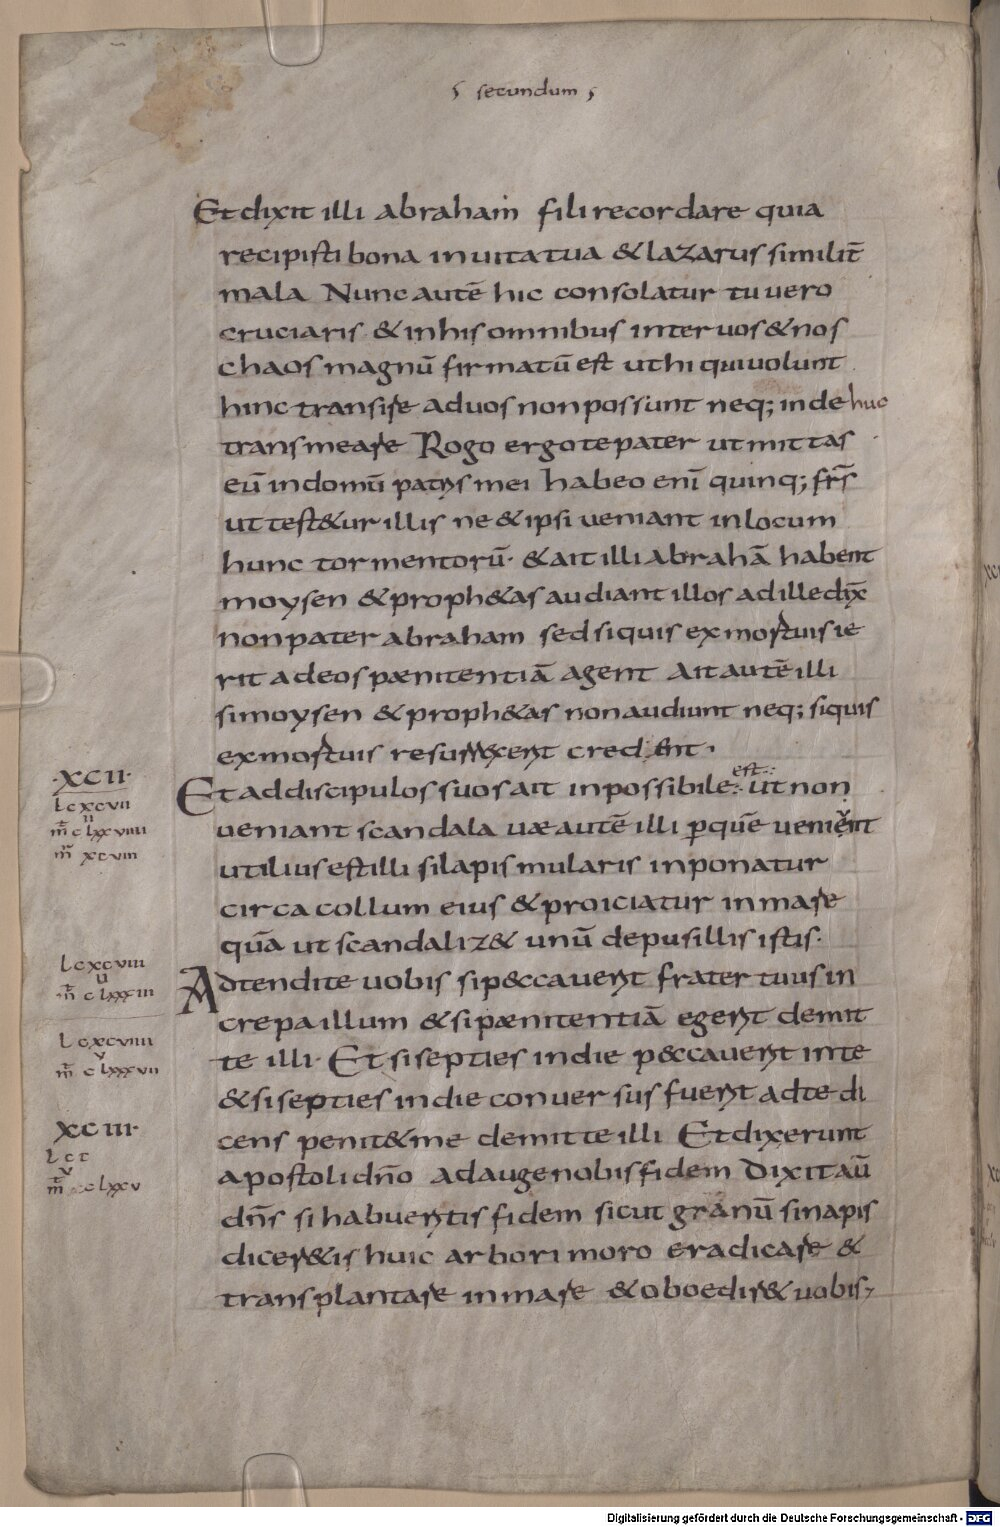 secundum
Et dixit illi abraham fili recordare quia
recipisti bona in uita tua & lazarus similit̄
mala Nunc autē hic consolatur tu uero
cruciaris & in his omnibus inter uos & nos
chaos magnū firmatū est ut hi qui uolunt
hinc transire ad uos non possunt neq; inde huc
transmeare Rogo ergo te pater ut mittas
eū in domū patris mei habeo enī quinq; fr̄s
ut test&ur illis ne & ipsi ueniant in locum
hunc tormentorū· & ait illi abrahā habent
moysen & proph&as audiant illos ad ille dix̄
non pater abraham sed si quis ex mortuis ie
rit ad eos pænitentiā agent Ait autē illi
si moysen & proph&as non audiunt neq; si quis
ex mortuis resurrexerit credent·
·XCII·
Et ad discipulos suos ait inpossibile est ut non
lcxcvii
ueniant scandala uæ autē illi ꝑ quē uenient
m̄ clxxviiii
m̄ xcviii
utilius est illi si lapis mularis inponatur
circa collum eius & proiciatur in mare
quā ut scandaliz& unū de pusillis istis·
lcxcviii
Adtendite uobis si peccauerit frater tuus in
m̄ clxxxiii
crepa illum & si pænitentiā egerit demit
lcxcviiii
te illi· Et si septies in die peccauerit in te
m̄ clxxxvii
& si septies in die conuersus fuerit ad te di
XCIII·
cens penit& me demitte illi Et dixerunt
lcc
apostoli dn̄o adauge nobis fidem Dixit aū
dn̄s si habueritis fidem sicut granū sinapis
dicer&is huic arbori moro eradicare &
transplantare in mare & oboedir& uobis·
Digitalisierung gefördert durch die Deutsche Forschungsgemeinschaft - DFG